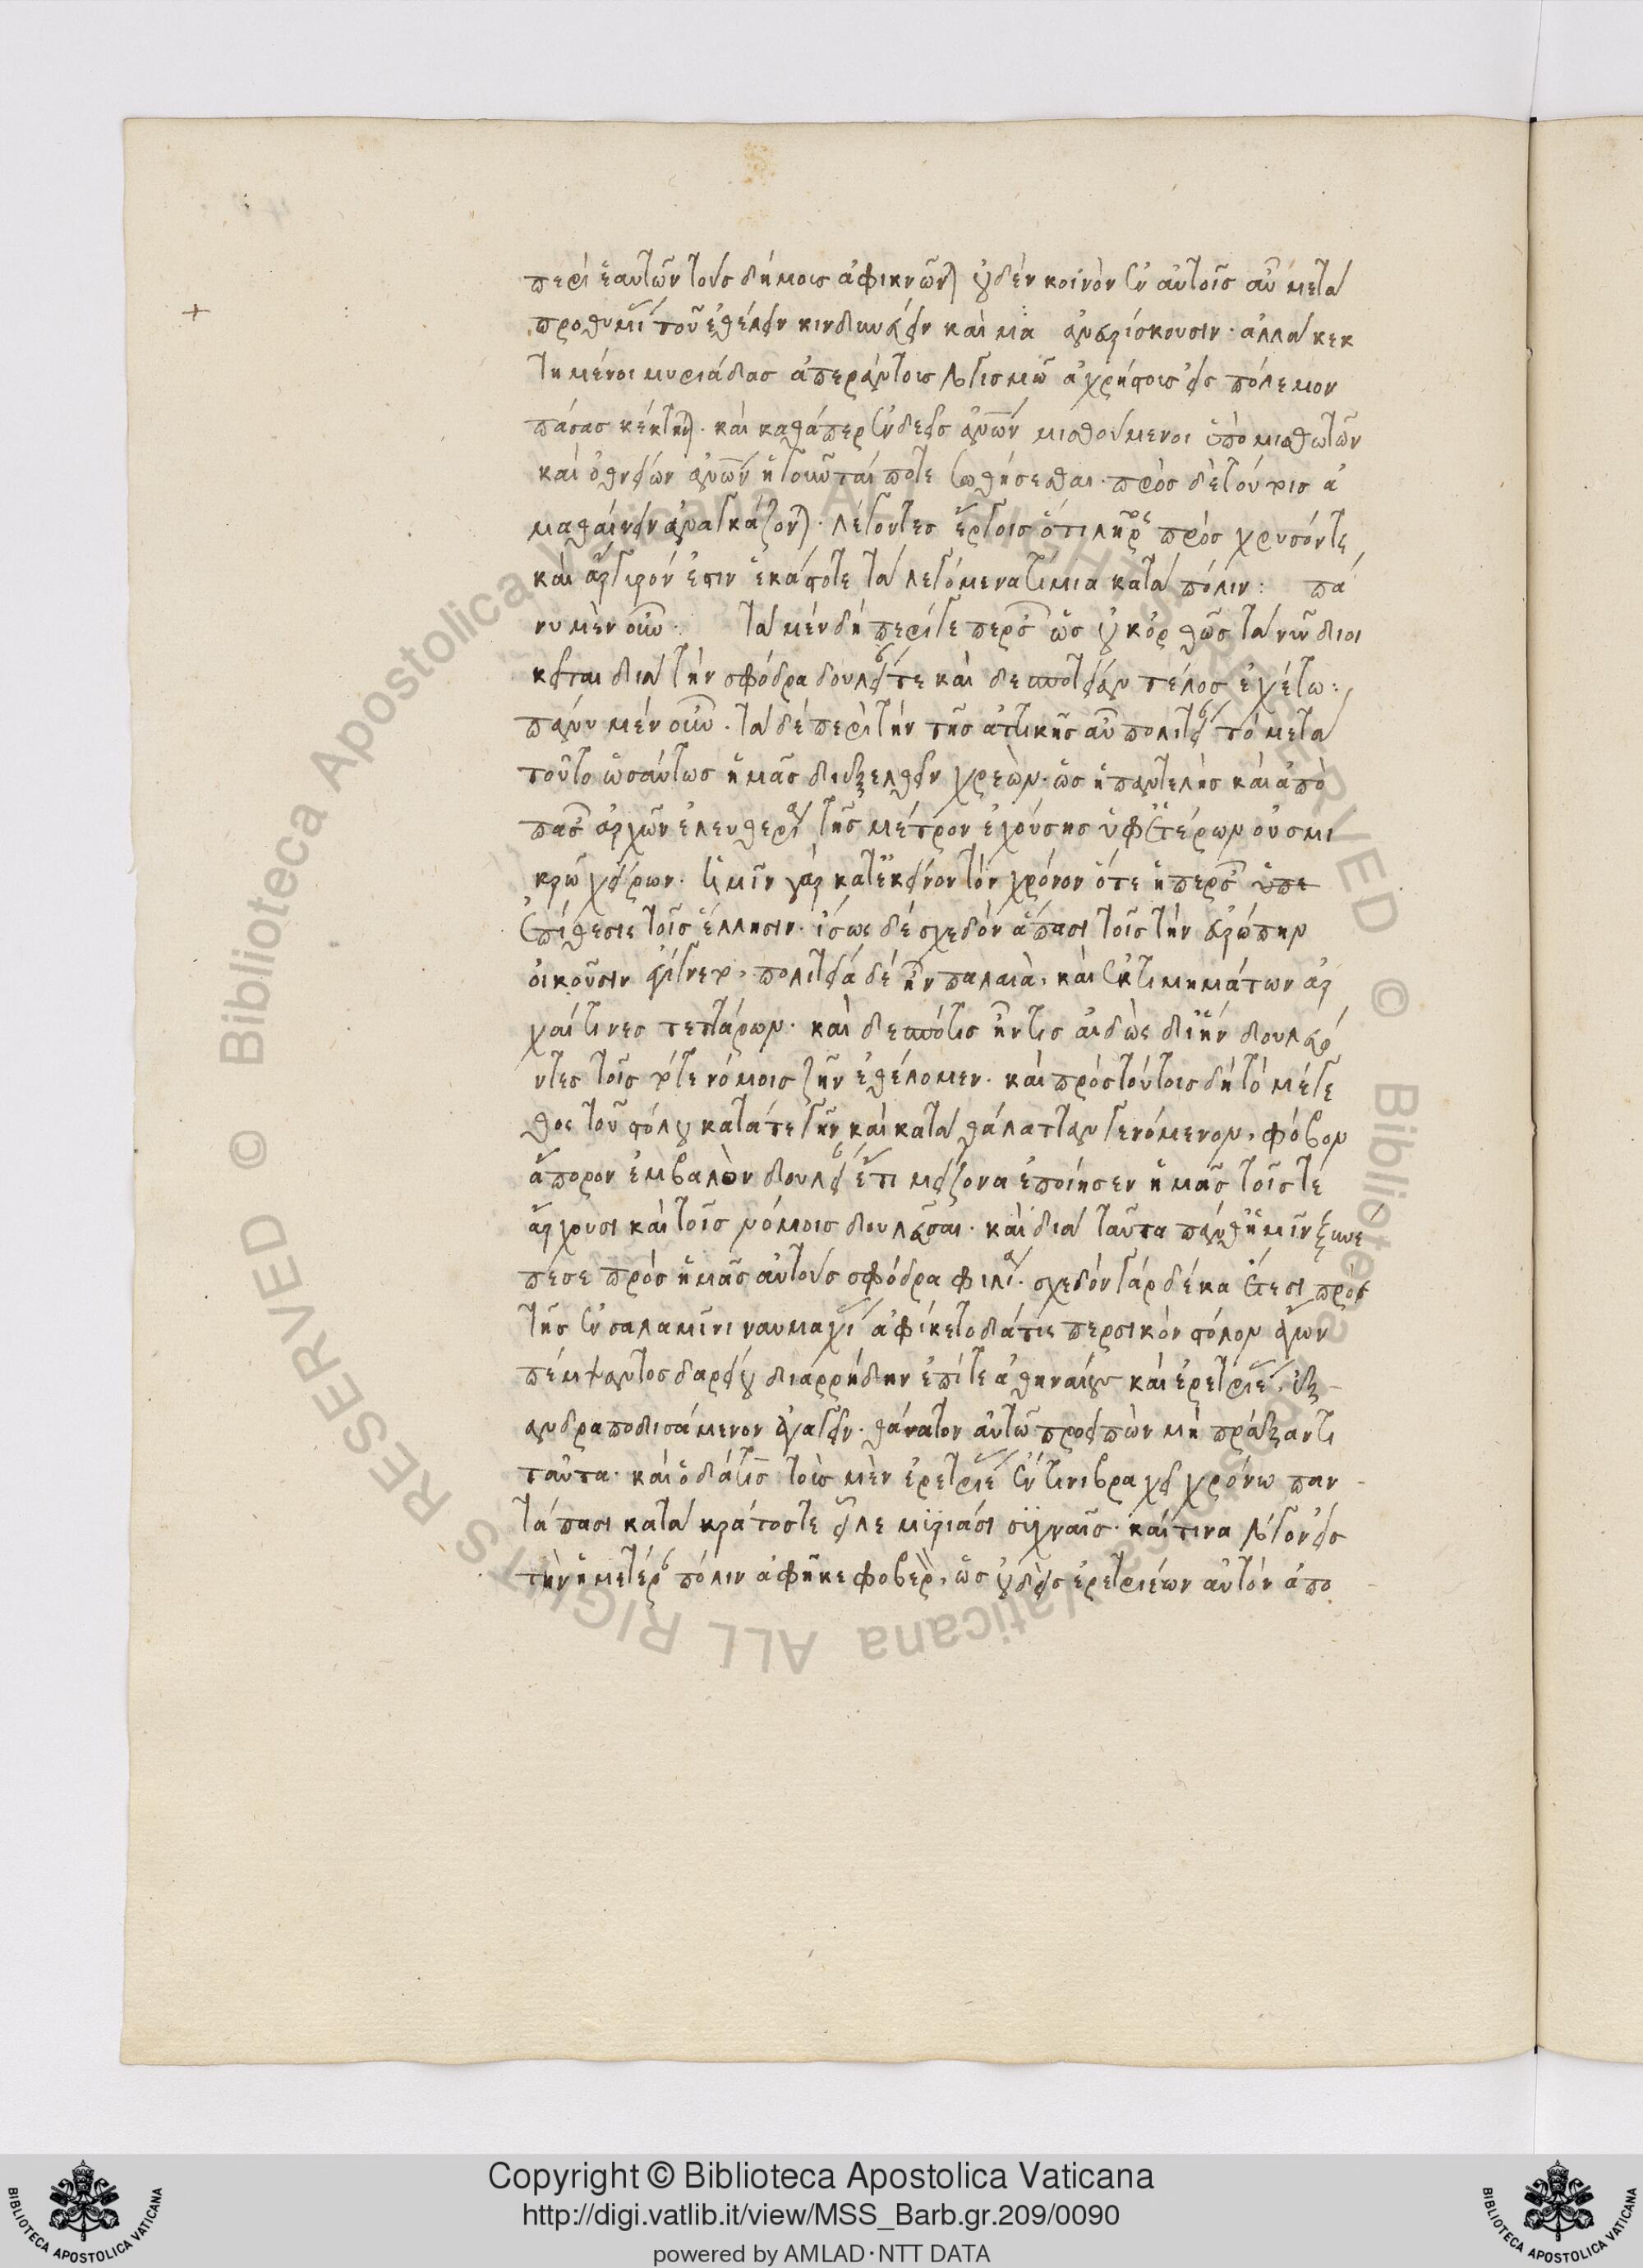 περὶ ἑαυτῶν τοὺς δήμους ἀφικνῶνται οὐδὲν κοινὸν ἐν αὐτοῖς αὖ μετὰ
προθυμίας τοῦ ἐθέλειν κινδυνεύειν καὶ μα ἀνευρίσκουσιν· ἀλλὰ κεκ
τημένοι μυριάδας ἀπεράντους λογισμῶ ἀχρήστους εἰς πόλεμον
πάσας κέκτηνται· καὶ καθάπερ ἐνδεεῖς ἀνθρώπων μισθούμενοι ὑπὸ μισθωτῶν
καὶ ὀθνείων ἀνθρώπων ἡγοῦνταί ποτε σωθήσεσθαι· πρὸς δὲ τούτοις ἀ
μαθαίνειν ἀναγκάζονται· λέγοντες ἔργοις ὅτι λῆρος πρὸς χρυσόν τε
καὶ ἄργυρόν ἐστιν ἑκάστοτε τὰ λεγόμενα τίμια κατὰ πόλιν: πά
νυ μὲν οὖν· τὰ μὲν δὴ περί γε περσῶν ὡς οὐκ ὀρθῶς τὰ νῦν διοι
κεῖται διὰ τὴν σφόδρα δουλείαν τε καὶ δεσποτείαν τέλος ἐχέτω:
πάνυ μὲν οὖν· τὰ δὲ περὶ τὴν τῆς ἀττικῆς αὖ πολιτείας τὸ μετὰ
τοῦτο ὡσαύτως ἡμᾶς διεξελθεῖν χρεών· ὡς ἡ παντελὴς καὶ ἀπὸ
πασῶν ἀρχῶν ἐλευθερία τῆς μέτρον ἐχούσης ὑφ' ἑτέρων οὐ σμι
κρῶ χείρων· ἡμῖν γὰρ κατ' ἐκεῖνον τὸν χρόνον ὅτε ἡ περσῶν ὑπε
ἐπίθεσις τοῖς ἕλλησιν· ἴσως δὲ σχεδὸν ἅπασι τοῖς τὴν εὐρώπην
οἰκοῦσιν ἐγίγνετο· πολιτεία δὲ ἦν παλαιὰ· καὶ ἐκ τιμημάτων ἀρ
χαί τινες τεττάρων· καὶ δεσπότις ἦν τις αἰδὼς δι' ἣν δουλεύο
ντες τοῖς τότε νόμοις ζῆν ἐθέλομεν· καὶ πρὸς τούτοις δὴ τὸ μέγε
θος τοῦ στόλου κατά τε γῆν καὶ κατὰ θάλατταν γενόμενον, φόβον
ἄπορον ἐμβαλὼν δουλείαν ἔτι μείζονα ἐποίησεν ἡμᾶς τοῖς τέ
ἄρχουσι καὶ τοῖς νόμοις δουλεῦσαι· καὶ διὰ ταῦτα πάνθ' ἡμῖν ξυνέ
πεσε πρὸς ἡμᾶς αὐτοὺς σφόδρα φιλία· σχεδὸν γὰρ δέκα ἔτεσι πρὸς
τῆς ἐν σαλαμῖνι ναυμαχίας ἀφίκετο δάτις περσικὸν στόλον ἄγων
πέμψαντος δαρείου διαρρήδην ἐπί τε ἀθηναίους καὶ ἐρετριέας, ἐξ-
ανδραποδισάμενον ἀγαγεῖν· θάνατον αὐτῶ προειπὼν μὴ πράξαντι
ταῦτα· καὶ ὁ δάτις τοὺς μὲν ἐρετριέας ἔν τινι βραχεῖ χρόνω παν-
τάπασι κατὰ κράτος τε εἷλε μυριάσι συχναῖς· καί τινα λόγον εἰς
τὴν ἡμετέραν πόλιν ἀφῆκε φοβερὸν, ὡς οὐδεὶς ἐρετριέων αὐτὸν ἀπο-
Copyright © Biblioteca Apostolica Vaticana
http://digi.vatlib.it/view/MSS_Barb.gr.209/0090
powered by AMLAD·NTT DATA
BIBLIOTECA APOSTOLICA VATICANA
BIBLIOTECA APOSTOLICA VATICANA
© Biblioteca Apostolica Vaticana ALL RIGHTS RESERVED © Biblioteca Apostolica Vaticana ALL RIGHTS RESERVED